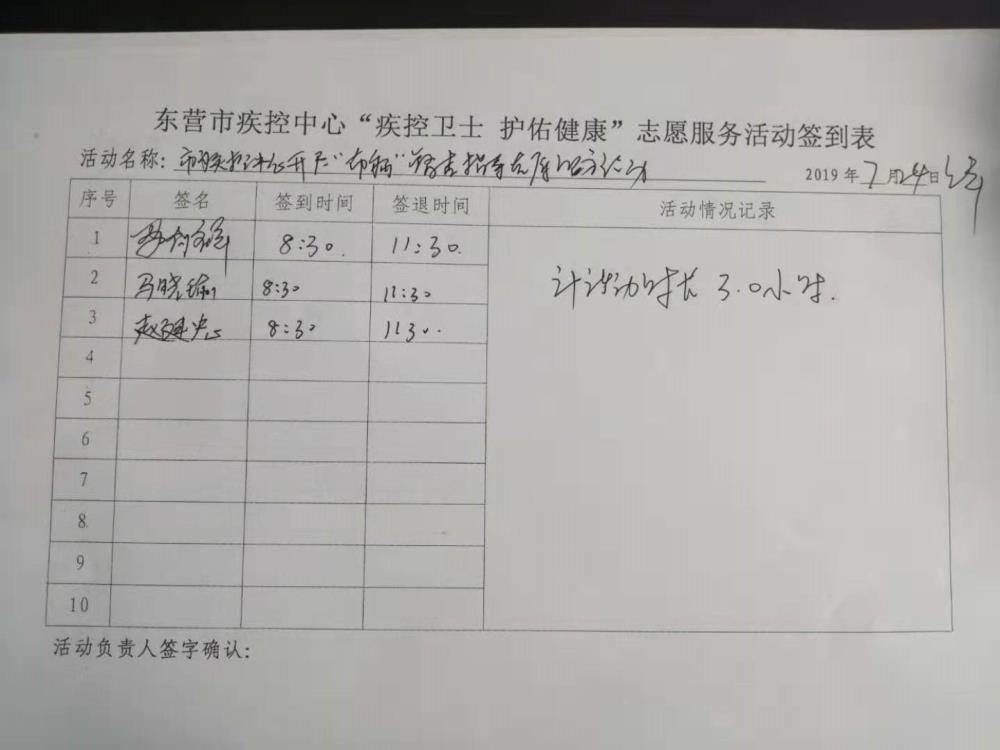 东营市疾控中心“疾控卫士 护佑健康”志愿服务活动签到表
活动名称：市疾控中心开展“布病” 2019年7月24日
序号 签名 签到时间 签退时间 活动情况记录
1 8:30. 11:30.
2 马晓 8:30 11:30 计活动时长 3.0小时.
3 赵 8:30 1130.
4
5
6
7
8
9
10
活动负责人签字确认：